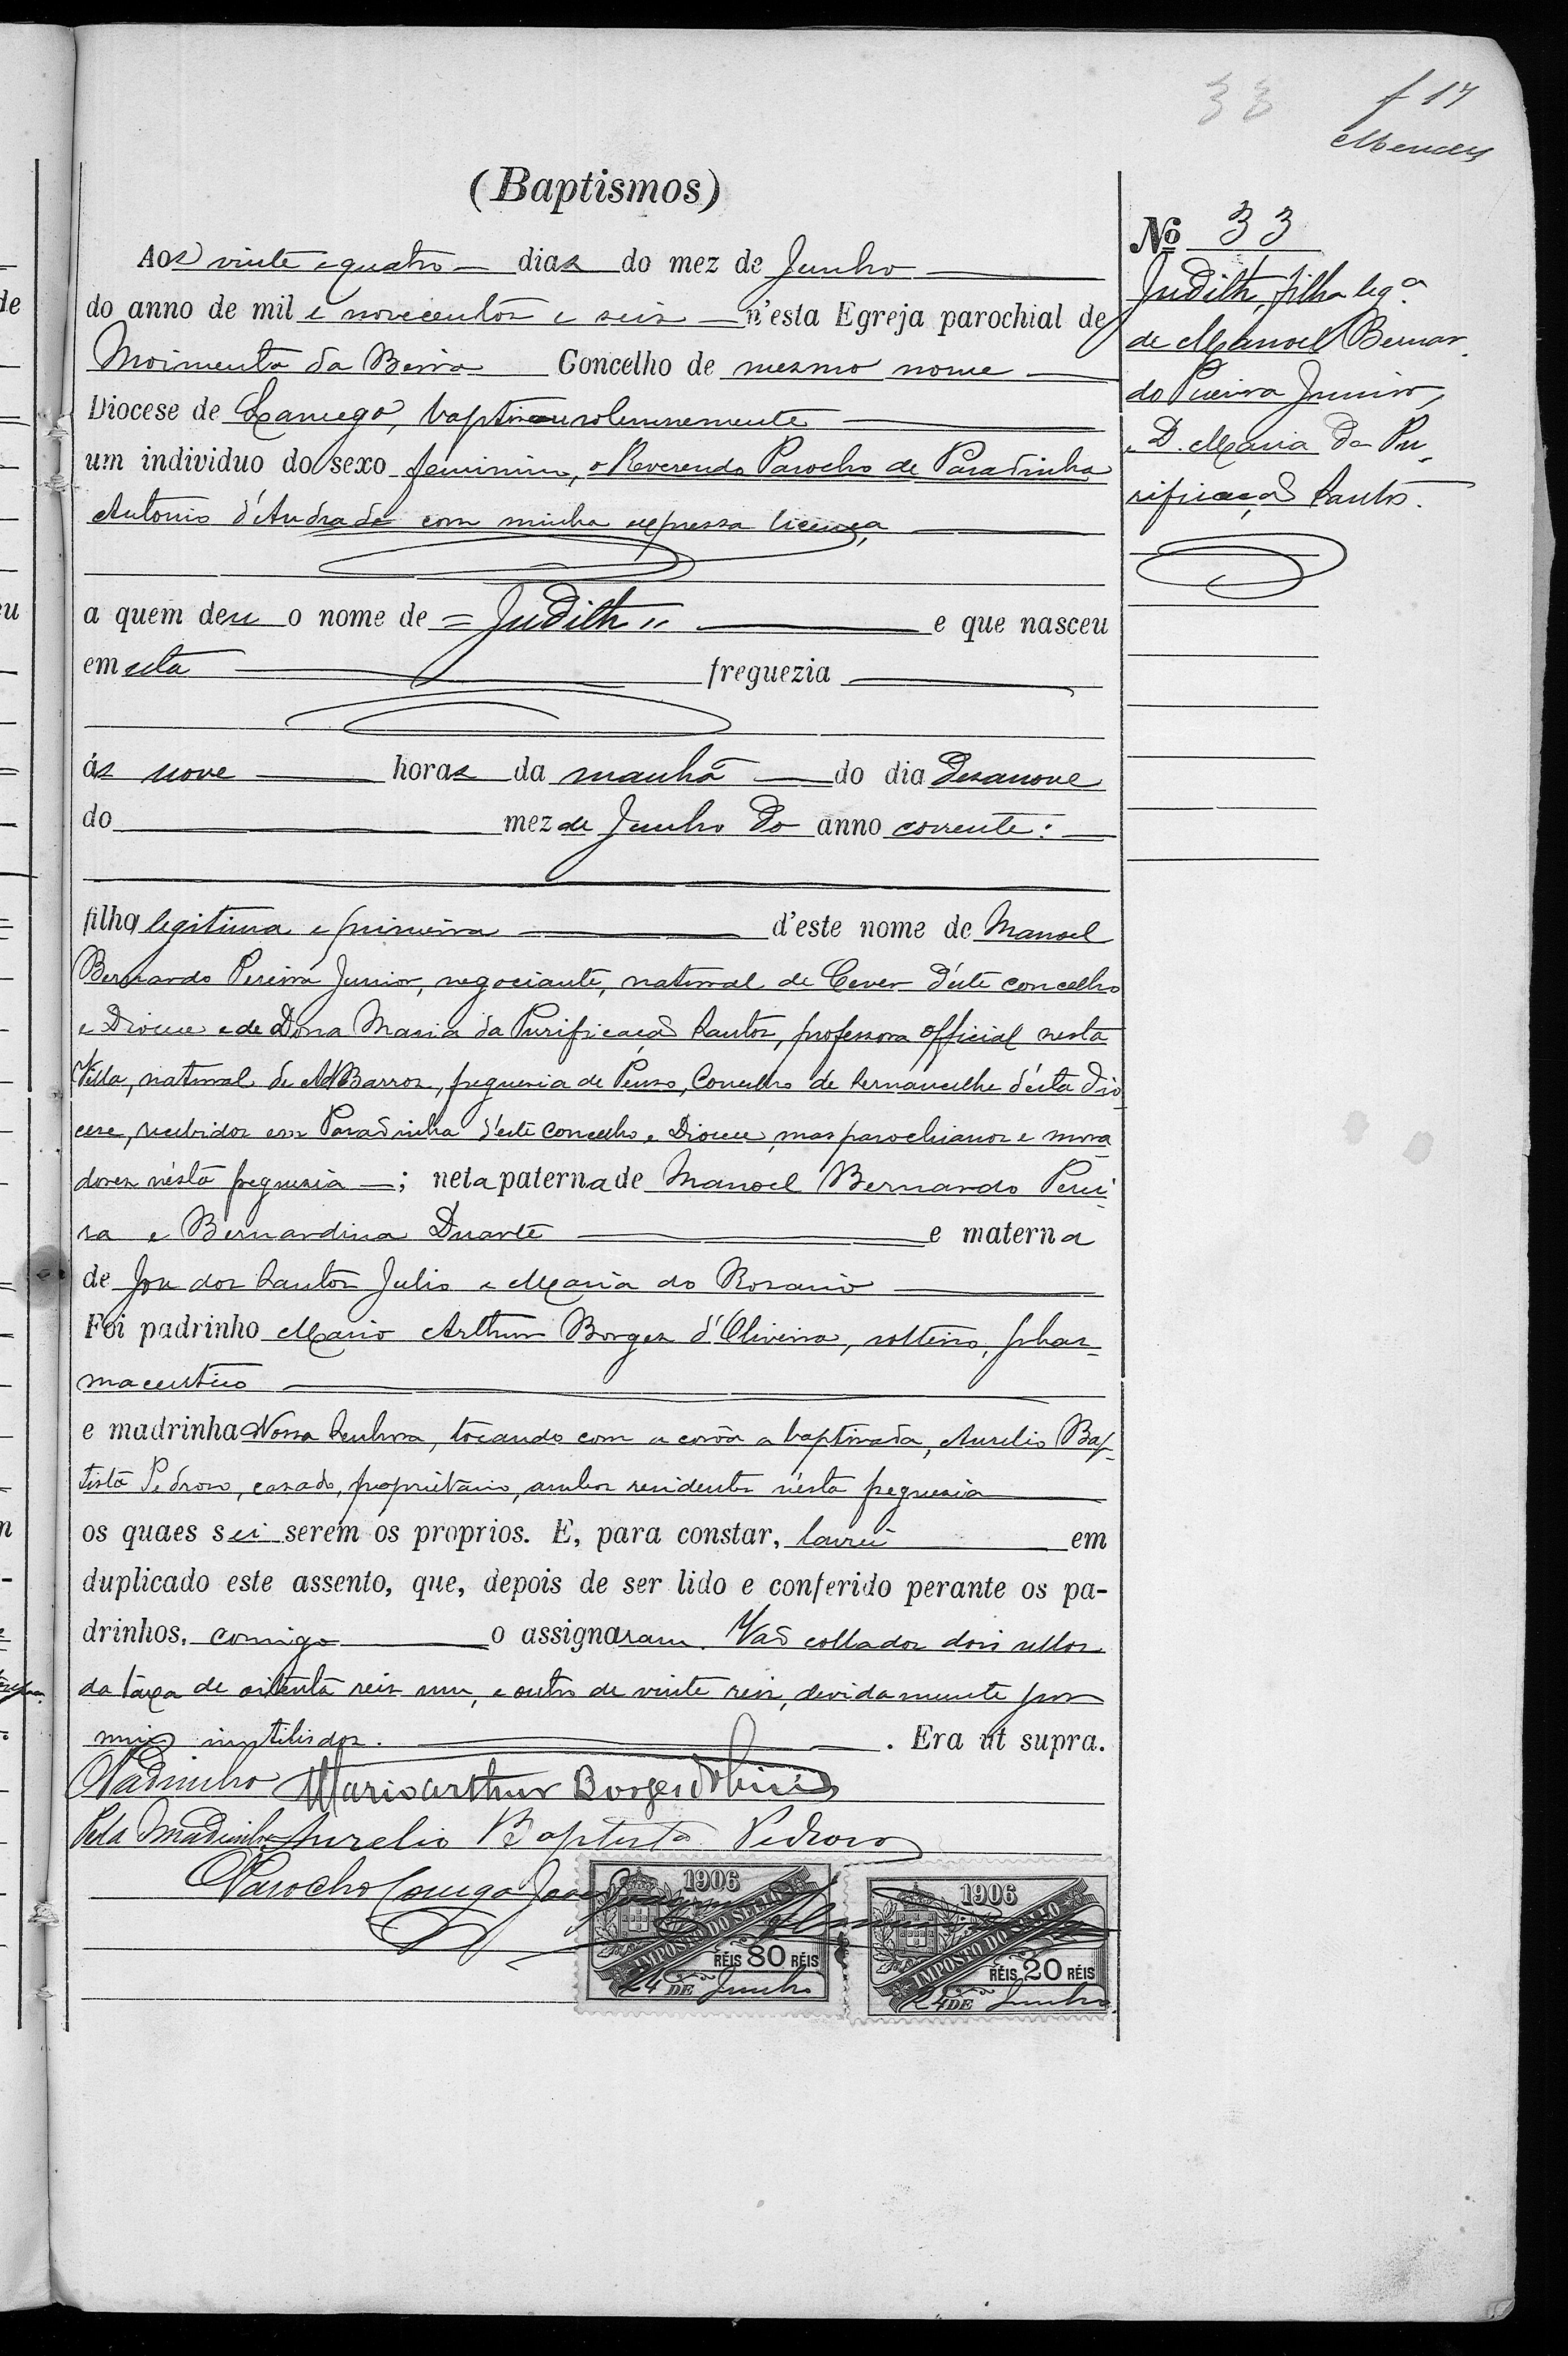 33
f 17
Mendes
(Baptismos)
Aos vinte e quatro dias do mez de Junho
do anno de mil e novecentos e seis n'esta Egreja parochial de
Moimenta da Beira Concelho de mesmo nome
Diocese de Lamego, baptisou solemnemente
um individuo do sexo feminino, o Reverendo Parocho de Paradinha
Antonio d'Andrade com minha expressa licença
a quem deu o nome de = Judith " e que nasceu
em esta freguezia
ás nove horas da manhã do dia desanove
do mez de Junho do anno corrente:
filha legitima e primeira d'este nome de Manoel
Bernardo Pereira Junior, negociante, natural de Cever d'este concelho
e Diocese e de Dona Maria da Purificação Santos, professora official nesta
Villa, natural de A dBarros, freguesia de Penso, Concelho de Sernancelhe d'esta Dio
cese, recebidos em Paradinha d'este Concelho e Diocese, mas parochianos e mora
dores n'esta freguesia ; neta paterna de Manoel Bernardo Perei
ra e Bernardina Duarte e materna
de José dos Santos Julio e Maria do Rosario
Foi padrinho Mario Arthur Borges d'Oliveira, solteiro, phar=
maceutico
e madrinha Nossa Senhora, tocando com a corôa a baptisada, Aurelio Bap-
tista Pedroso, casado, proprietario, ambos residentes n'esta freguesia
os quaes sei serem os proprios. E, para constar, lavrei em
duplicado este assento, que, depois de ser lido e conferido perante os pa-
drinhos, comigo o assignaram. Vão collados dois sellos
da taxa de oitenta reis um, e outro de vinte reis, devidamente por
mim inutilisdos. . Era ut supra.
Padrinho Mario Arthur Borges d'Oliveira
Pela Madrinha Aurelio Baptista Pedroso
Parocho Conego José
1906
IMPOSTO DO SELLO
RÉIS 80 RÉIS
24 DE Junho
1906
IMPOSTO DO SELLO
RÉIS 20 RÉIS
24 DE Junho
Nº 33
Judith, filha leg.ª
de Manoel Bernar
do Pereira Junior,
e D. Maria da Pu-
rificação Santos.